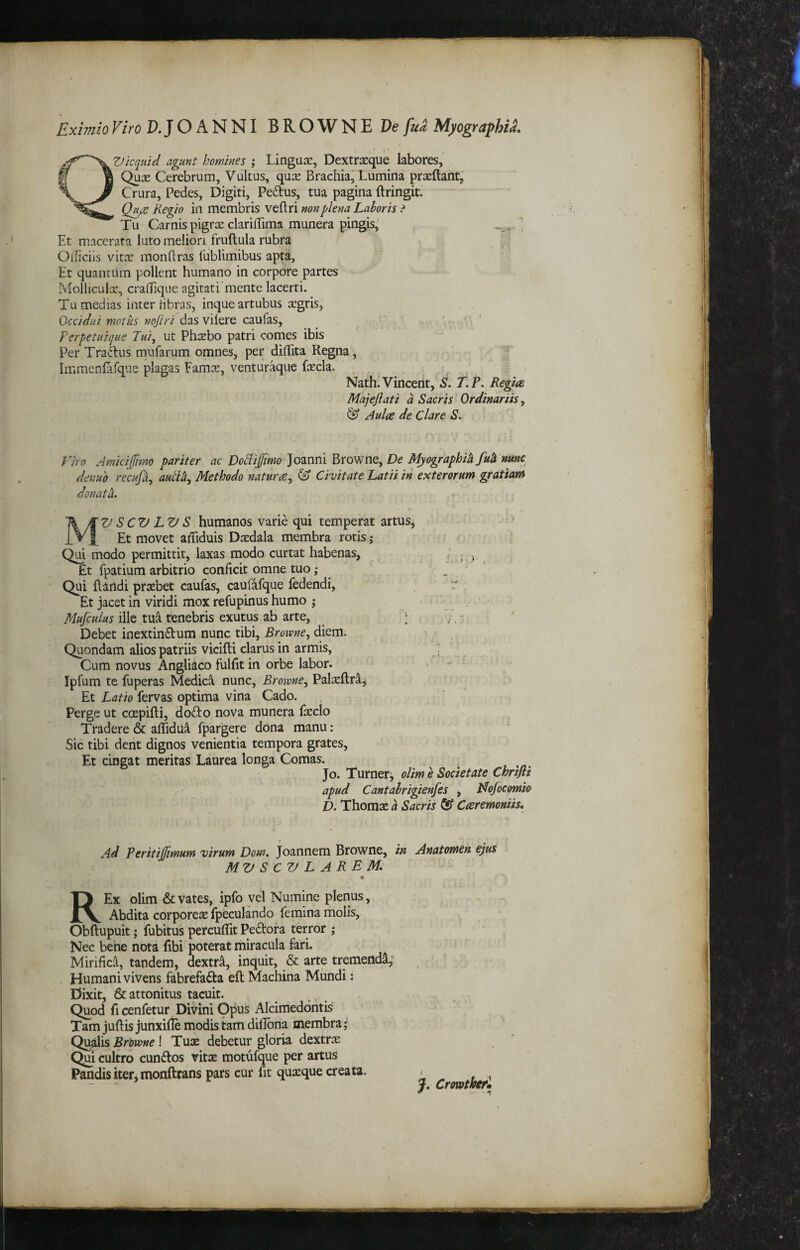 Eximio Viro D. JOANNI BROWNE De ſuâ Myographiâ.
QVicquid agunt homines ; Linguæ, Dextræque labores,
Quæ Cerebrum, Vultus, quæ Brachia, Lumina præſtant,
Crura, Pedes, Digiti, Pectus, tua pagina ſtringit.
Quæ Regio in membris veſtri non plena Laboris ?
Tu Carnis pigræ clariſſima munera pingis,
Et macerata luto meliori fruſtula rubra
Officiis vitæ monſtras ſublimibus apta,
Et quantum pollent humano in corpore partes
Molliculæ, craſſique agitati mente lacerti.
Tu medias inter fibras, inque artubus ægris,
Occidui motûs noſtri das viſere cauſas,
Perpetuique Tui, ut Phæbo patri comes ibis
Per Tractus muſarum omnes, per diſſita Regna,
Immenſaſque plagas Famæ, venturáque ſæcla.
Nath. Vincent, S. T. P. Regiæ
Majeſtati à Sacris Ordinariis,
& Aulæ de Clare S.
Viro Amiciſſimo pariter ac Doctiſſimo Joanni Browne, De Myographiâ ſuâ nunc
denuò recuſâ, auctâ, Methodo naturæ, & Civitate Latii in exterorum gratiam
donatâ.
MVSCVLVS humanos variè qui temperat artus,
Et movet aſſiduis Dædala membra rotis ;
Qui modo permittit, laxas modo curtat habenas,
Et ſpatium arbitrio conficit omne tuo ;
Qui ſtandi præbet cauſas, cauſáſque ſedendi,
Et jacet in viridi mox reſupinus humo ;
Muſculus ille tuâ tenebris exutus ab arte,
Debet inextinctum nunc tibi, Browne, diem.
Quondam alios patriis viciſti clarus in armis,
Cum novus Angliaco fulſit in orbe labor.
Ipſum te ſuperas Medicâ nunc, Browne, Palæſtrâ,
Et Latio ſervas optima vina Cado.
Perge ut cœpiſti, docto nova munera ſæclo
Tradere & aſſiduâ ſpargere dona manu :
Sic tibi dent dignos venientia tempora grates,
Et cingat meritas Laurea longa Comas.
Jo. Turner, olim è Societate Chriſti
apud Cantabrigienſes , Noſocomio
D. Thomæ à Sacris & Cæremoniis.
Ad Peritiſſimum virum Dom. Joannem Browne, in Anatomen ejus
MVSCVLAREM.
REx olim & vates, ipſo vel Numine plenus,
Abdita corporeæ ſpeculando ſemina molis,
Obſtupuit ; ſubitus percuſſit Pectora terror ;
Nec bene nota ſibi poterat miracula fari.
Mirificâ, tandem, dextrâ, inquit, & arte tremendâ,
Humani vivens fabrefacta eſt Machina Mundi :
Dixit, & attonitus tacuit.
Quod ſi cenſetur Divini Opus Alcimedontis
Tam juſtis junxiſſe modis tam diſſona membra ;
Qualis Browne ! Tuæ debetur gloria dextræ
Qui cultro cunctos vitæ motúſque per artus
Pandis iter, monſtrans pars cur ſit quæque creata.
J. Crowther.